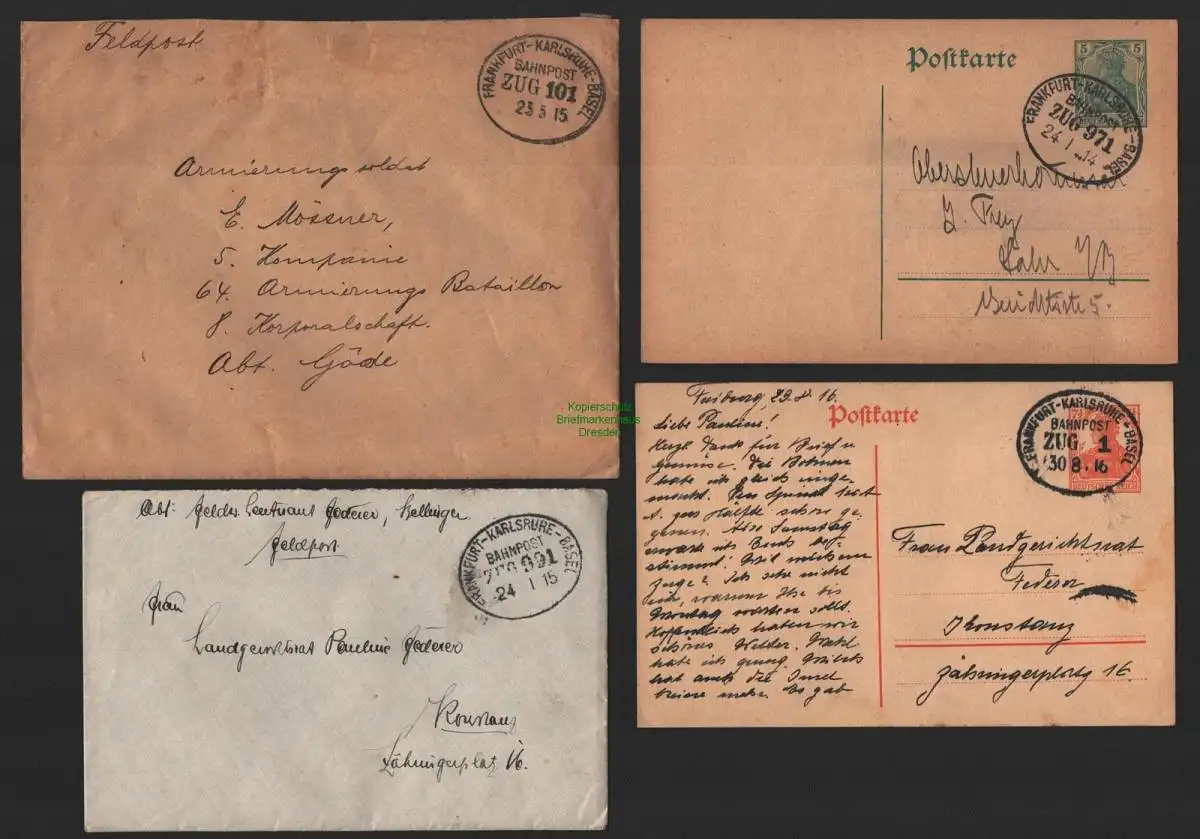 Feldpost
FRANKFURT-KARLSRUHE-BASEL
BAHNPOST
ZUG 101
23 3 15
Armierungssoldat
E. Mössner,
5. Kompanie
64. Armierungs Bataillon
8. Korporalschaft.
Abt. Göde
Postkarte
5 5
FRANKFURT-KARLSRUHE-BASEL
BAHNPOST
ZUG 971
24 1 14
Obersteuerkommissär
J. Frey
Lahr i/B
5.
Kopierschutz
Briefmarkenhaus
Dresden
Abs: Leutnant Federer,
Feldpost
FRANKFURT-KARLSRUHE-BASEL
BAHNPOST
ZUG 991
24 1 15
Frau
Landgerichtsrat Pauline Federer
Konstanz
Zähringerplatz 16.
Freiburg, 29. 8. 16.
Postkarte
FRANKFURT-KARLSRUHE-BASEL
BAHNPOST
ZUG 1
30 8. 16
DEUTSCHES REICH
Liebe Pauline!
Herzl. Dank für Brief u
Die Bohnen
habe ich gleich einge
macht.
d. ganze Hälfte schon ge
Also Samstag
stimmt! Mit welchem
Zuge? Ich sehe nicht
ein, warum Ihr bis
Montag warten sollt.
Hoffentlich haben wir
schönes Wetter.
habe ich genug. Milch
hat auch die Insel
keine mehr. Es gab
Frau Landgerichtsrat
Federer
Konstanz
Zähringerplatz 16.